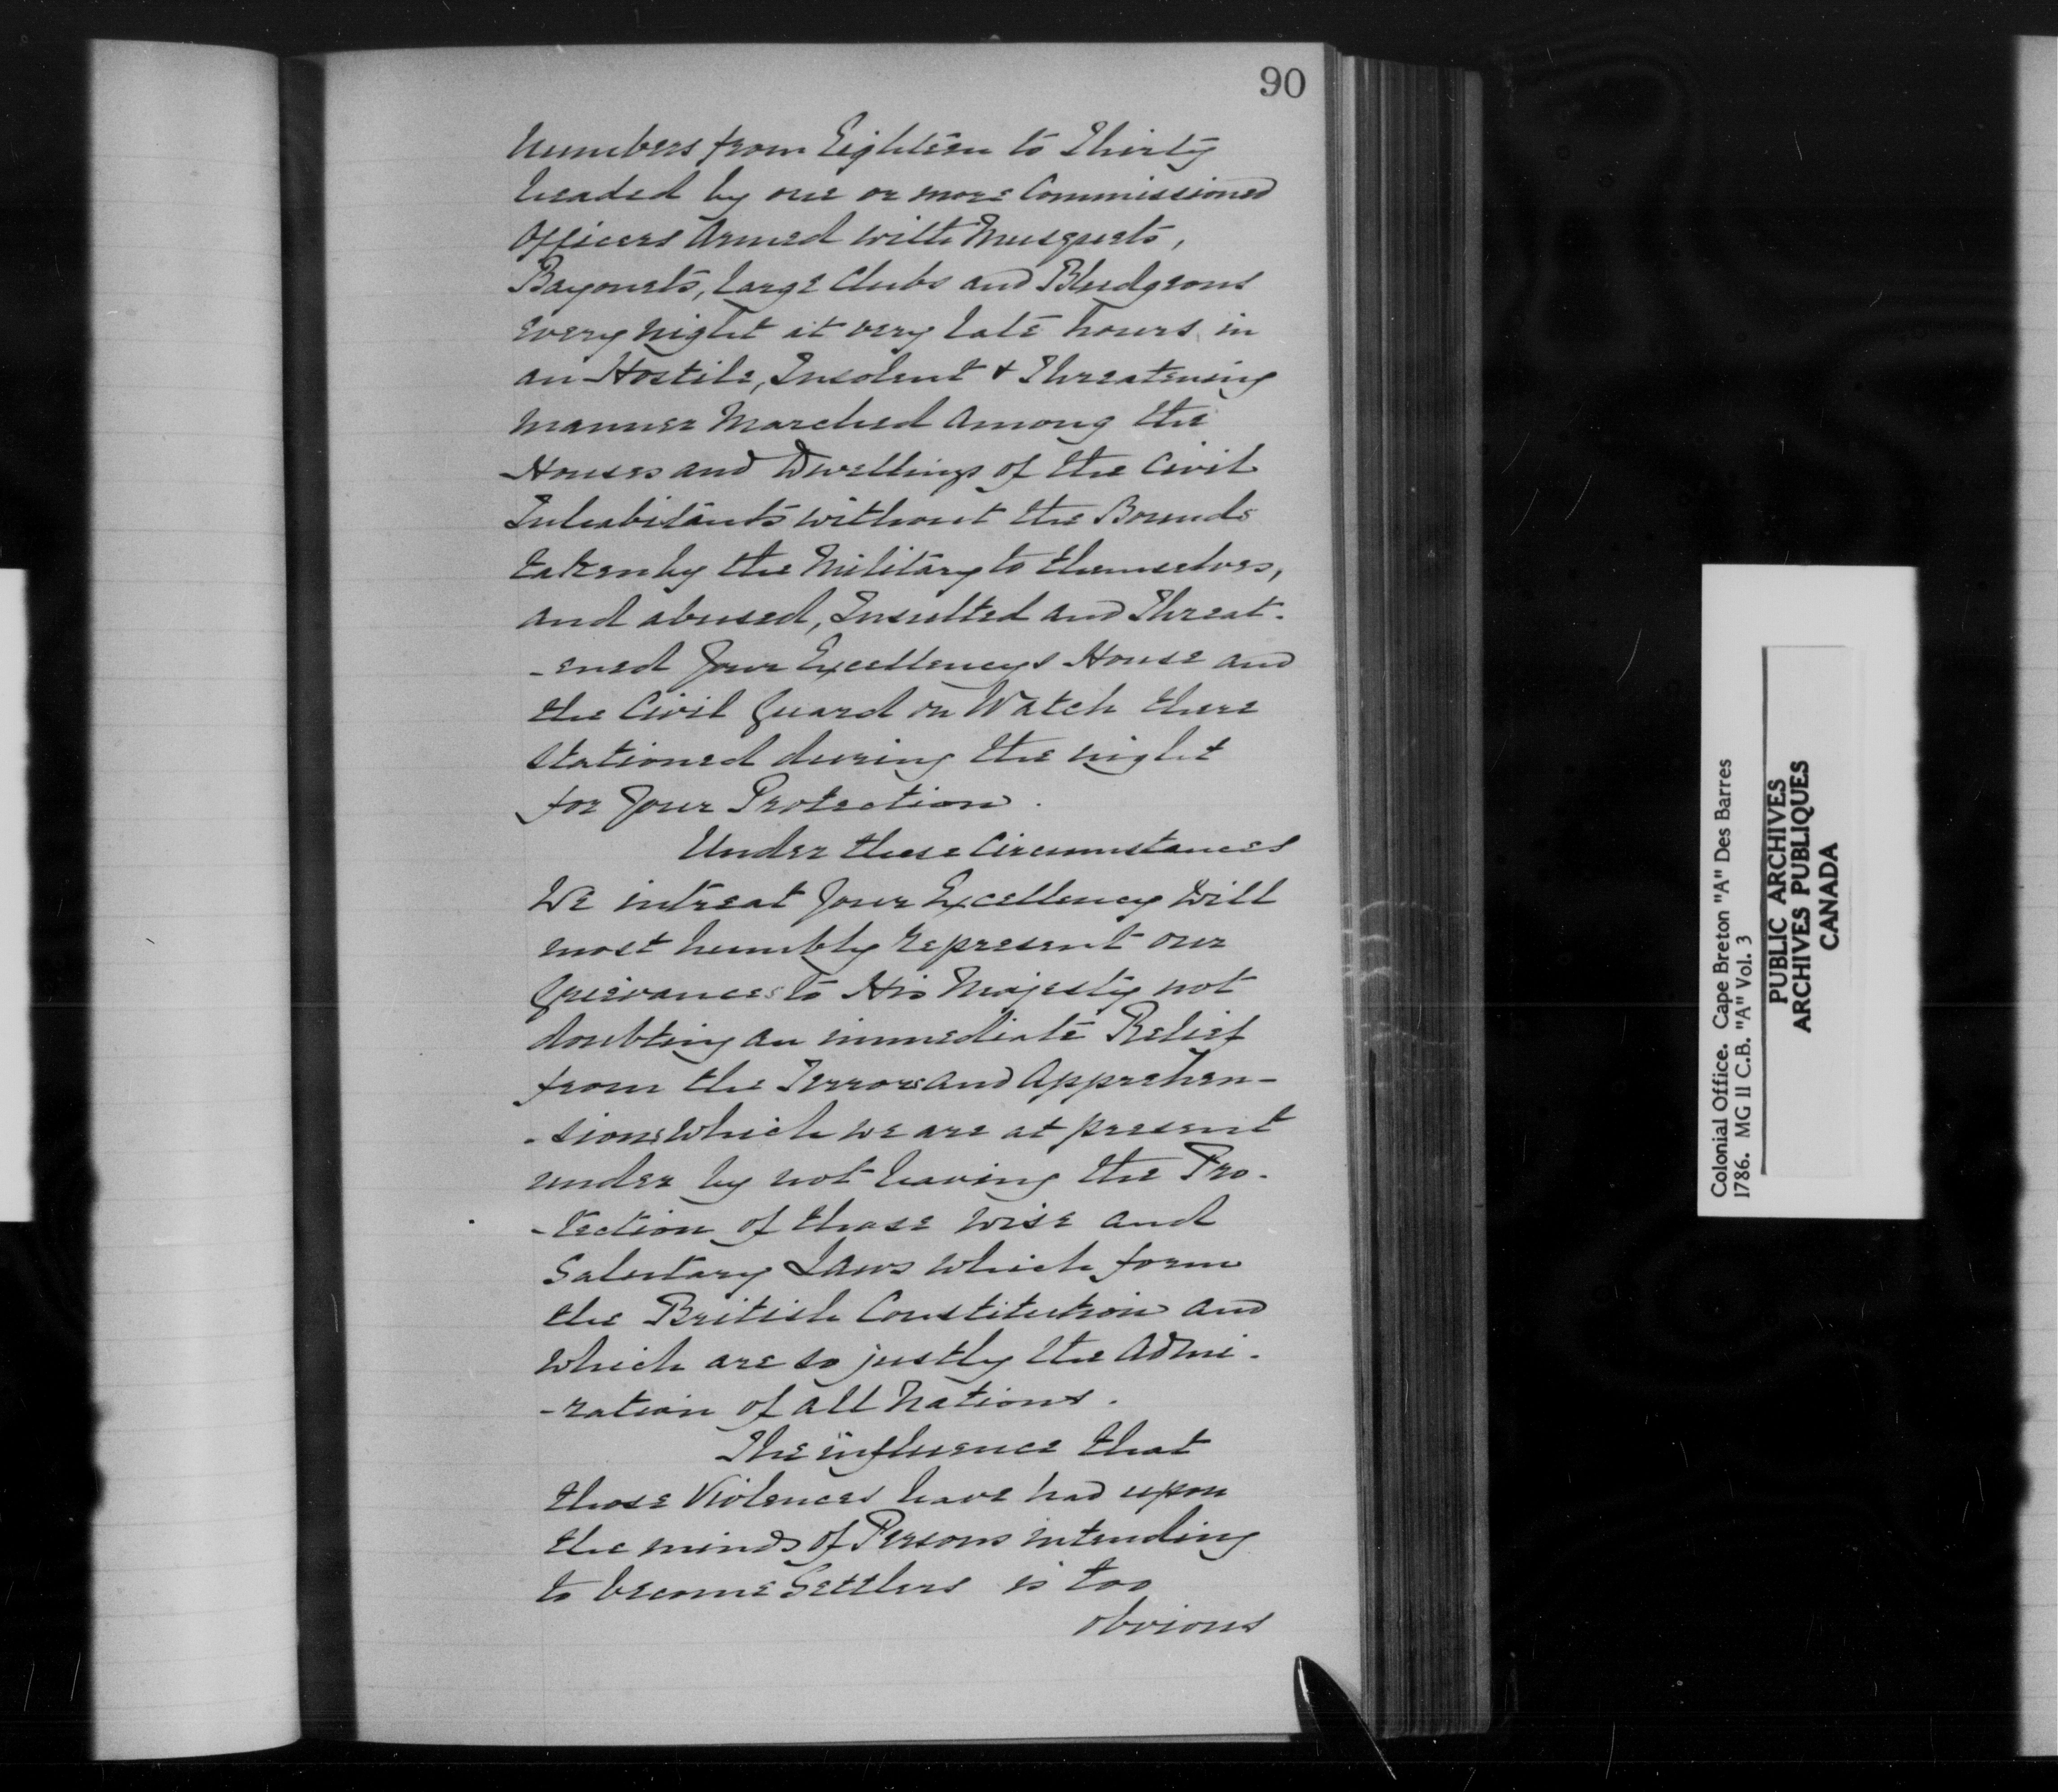 90
Numbers from Eighteen to Thirty
headed by one or more Commissioned
Officers Armed with Musquets,
Bayonets, large Clubs and Bludgeons
every night at very late hours in
an Hostile, Insolent & Threatening
manner Marched among the
Houses and Dwellings of the Civil
Inhabitants without the Bounds
taken by the Military to themselves,
and abused, Insulted and Threat-
-ened Your Excellencys House and
the Civil Guard on Watch there
stationed during the night
for Your Protection.
Under these Circumstances
We intreat Your Excellency will
most humbly represent our
Grievances to His Majesty not
doubting an immediate Relief
from the Terrors and Apprehen-
-sions which we are at present
under by not having the Pro-
-tection of those wise and
Salutary Laws which form
the British Constitution and
which are so justly the Admi-
-ration of all Nations.
The influence that
those Violences have had upon
the minds of Persons intending
to become Settlers is too
obvious
Colonial Office. Cape Breton "A" Des Barres
1786. MG 11 C.B. "A" Vol. 3
PUBLIC ARCHIVES
ARCHIVES PUBLIQUES
CANADA